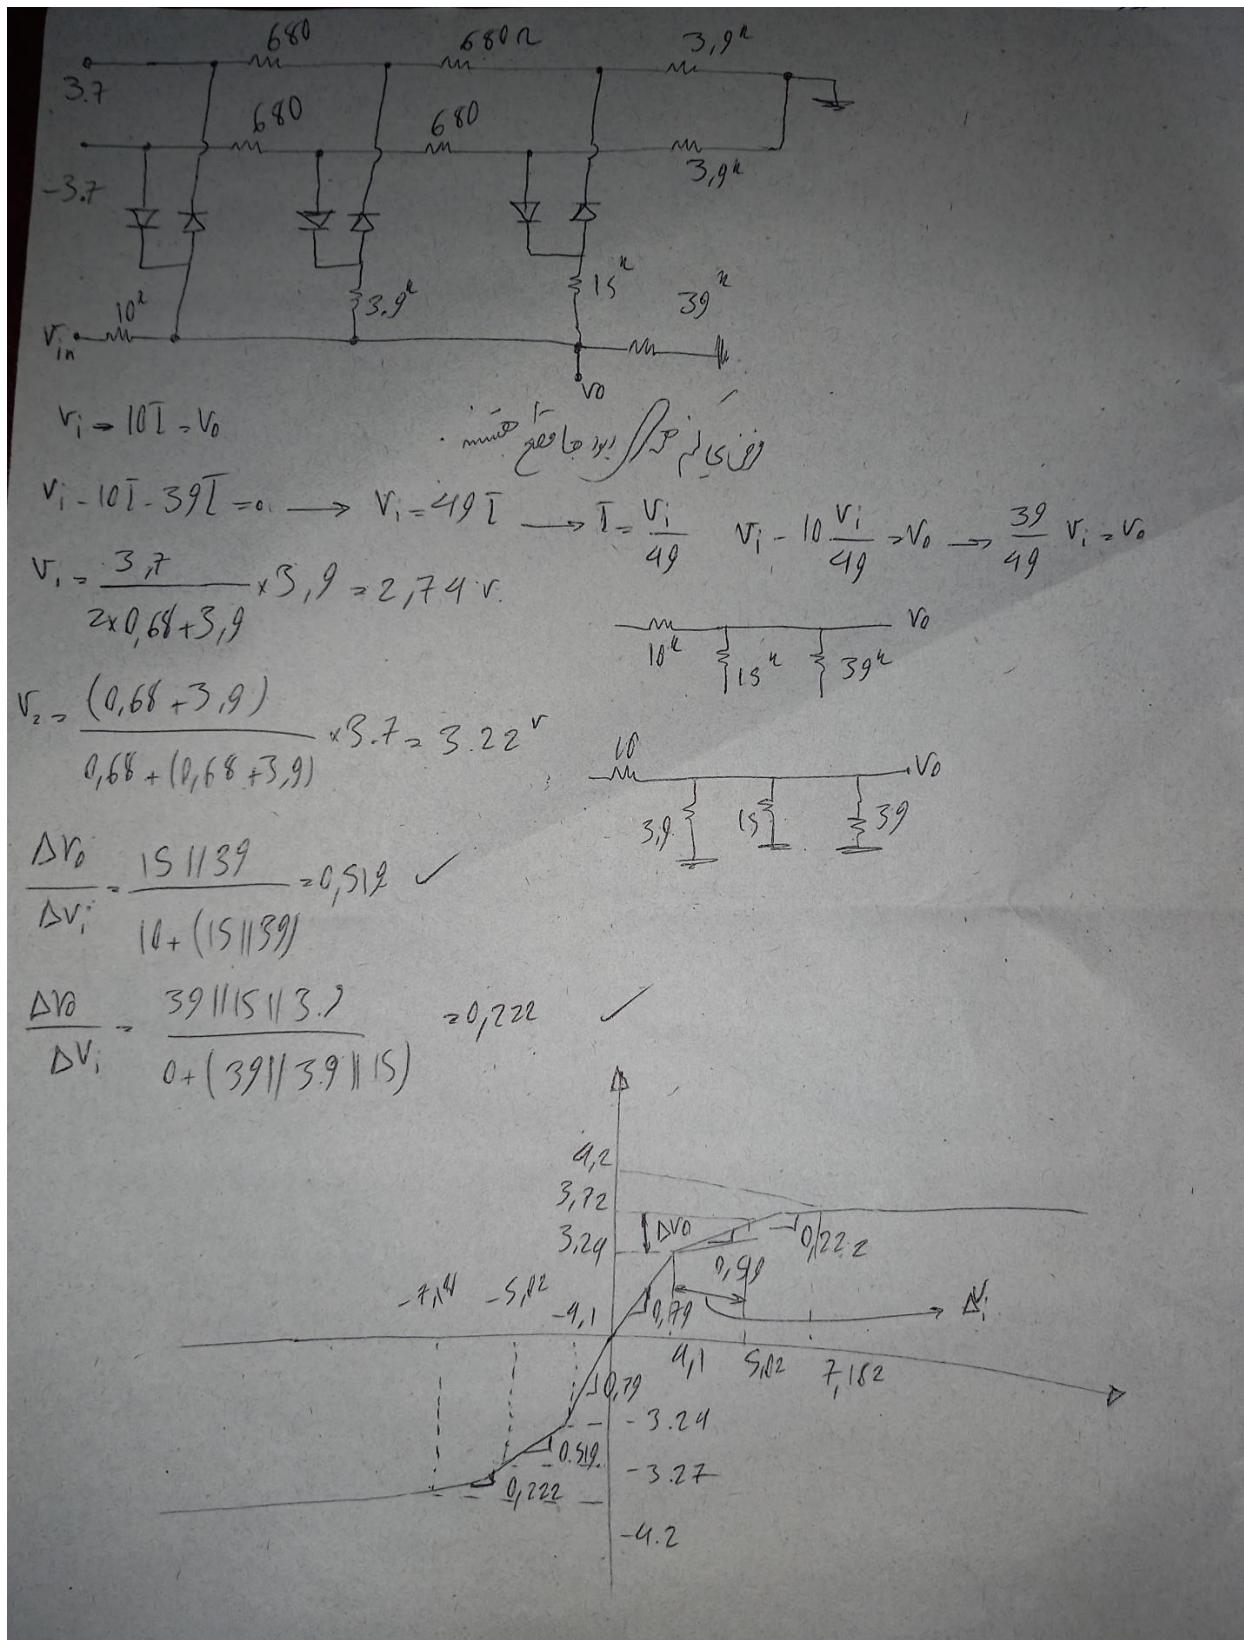 680 680Ω 3,9k
3.7
680 680
-3.7 3,9k
10k 3.9k 15k 39k
Vin
Vo
Vi - 10I = Vo
Vi - 10I - 39I = 0 → Vi = 49I → I = Vi/49 Vi - 10 Vi/49 = Vo → 39/49 Vi = Vo
V1 = 3,7/(2×0,68+3,9) ×3,9 = 2,74 v.
10k 15k 39k Vo
V2 = (0,68+3,9)/(0,68+(0,68+3,9)) ×3.7 = 3.22 v
10 3,9 15 39 Vo
ΔVo/ΔVi = 15||39/(10+(15||39)) = 0,519 ✓
ΔVo/ΔVi = 39||15||3.9/(0+(39||3.9||15)) = 0,222 ✓
4,2
3,72
3,24 ΔVo 0,222
0,519
-5,02 -4,1 0,79 ΔVi
4,1 5,02 7,182
0,79
-3.24
0.519
-3.27
0,222
-4.2